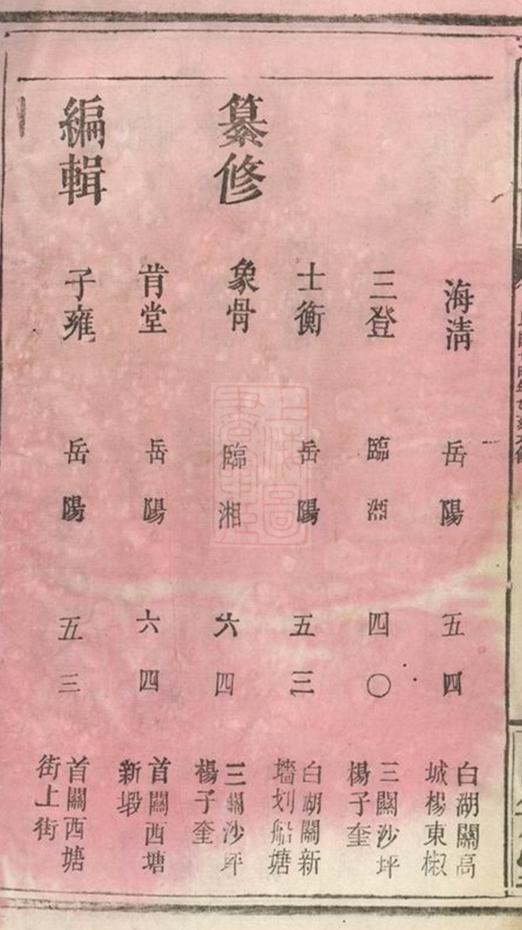 海淸 岳陽 五四 白湖關高城楊東椒
三登 臨湘 四〇 三關沙坪楊子奎
士衡 岳陽 五三 白湖關新墻划船塘
纂修 象骨 臨湘 六四 三關沙坪楊子奎
肯堂 岳陽 六四 首關西塘新塅
編輯 子雍 岳陽 五三 首關西塘街上街